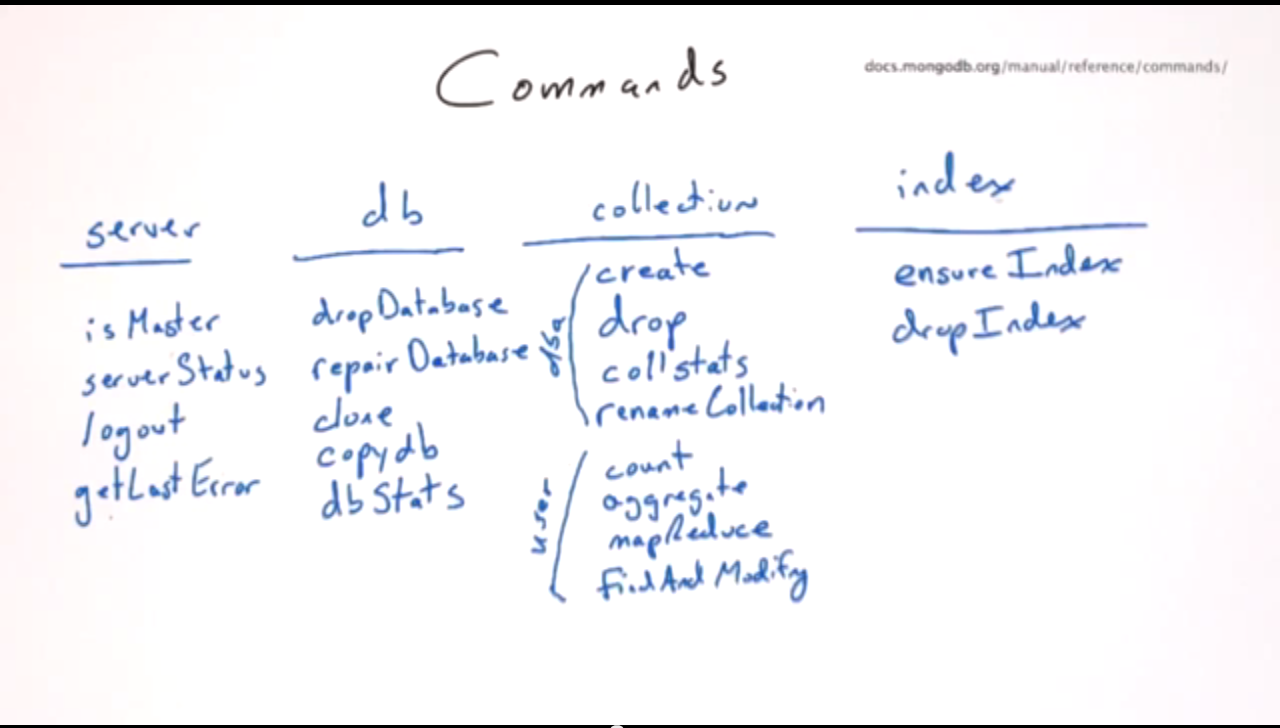 Commands
docs.mongodb.org/manual/reference/commands/
server
isMaster
serverStatus
logout
getLastError
db
dropDatabase
repairDatabase
clone
copydb
dbStats
collection
dba
create
drop
collstats
renameCollection
user
count
aggregate
mapReduce
findAndModify
index
ensureIndex
dropIndex